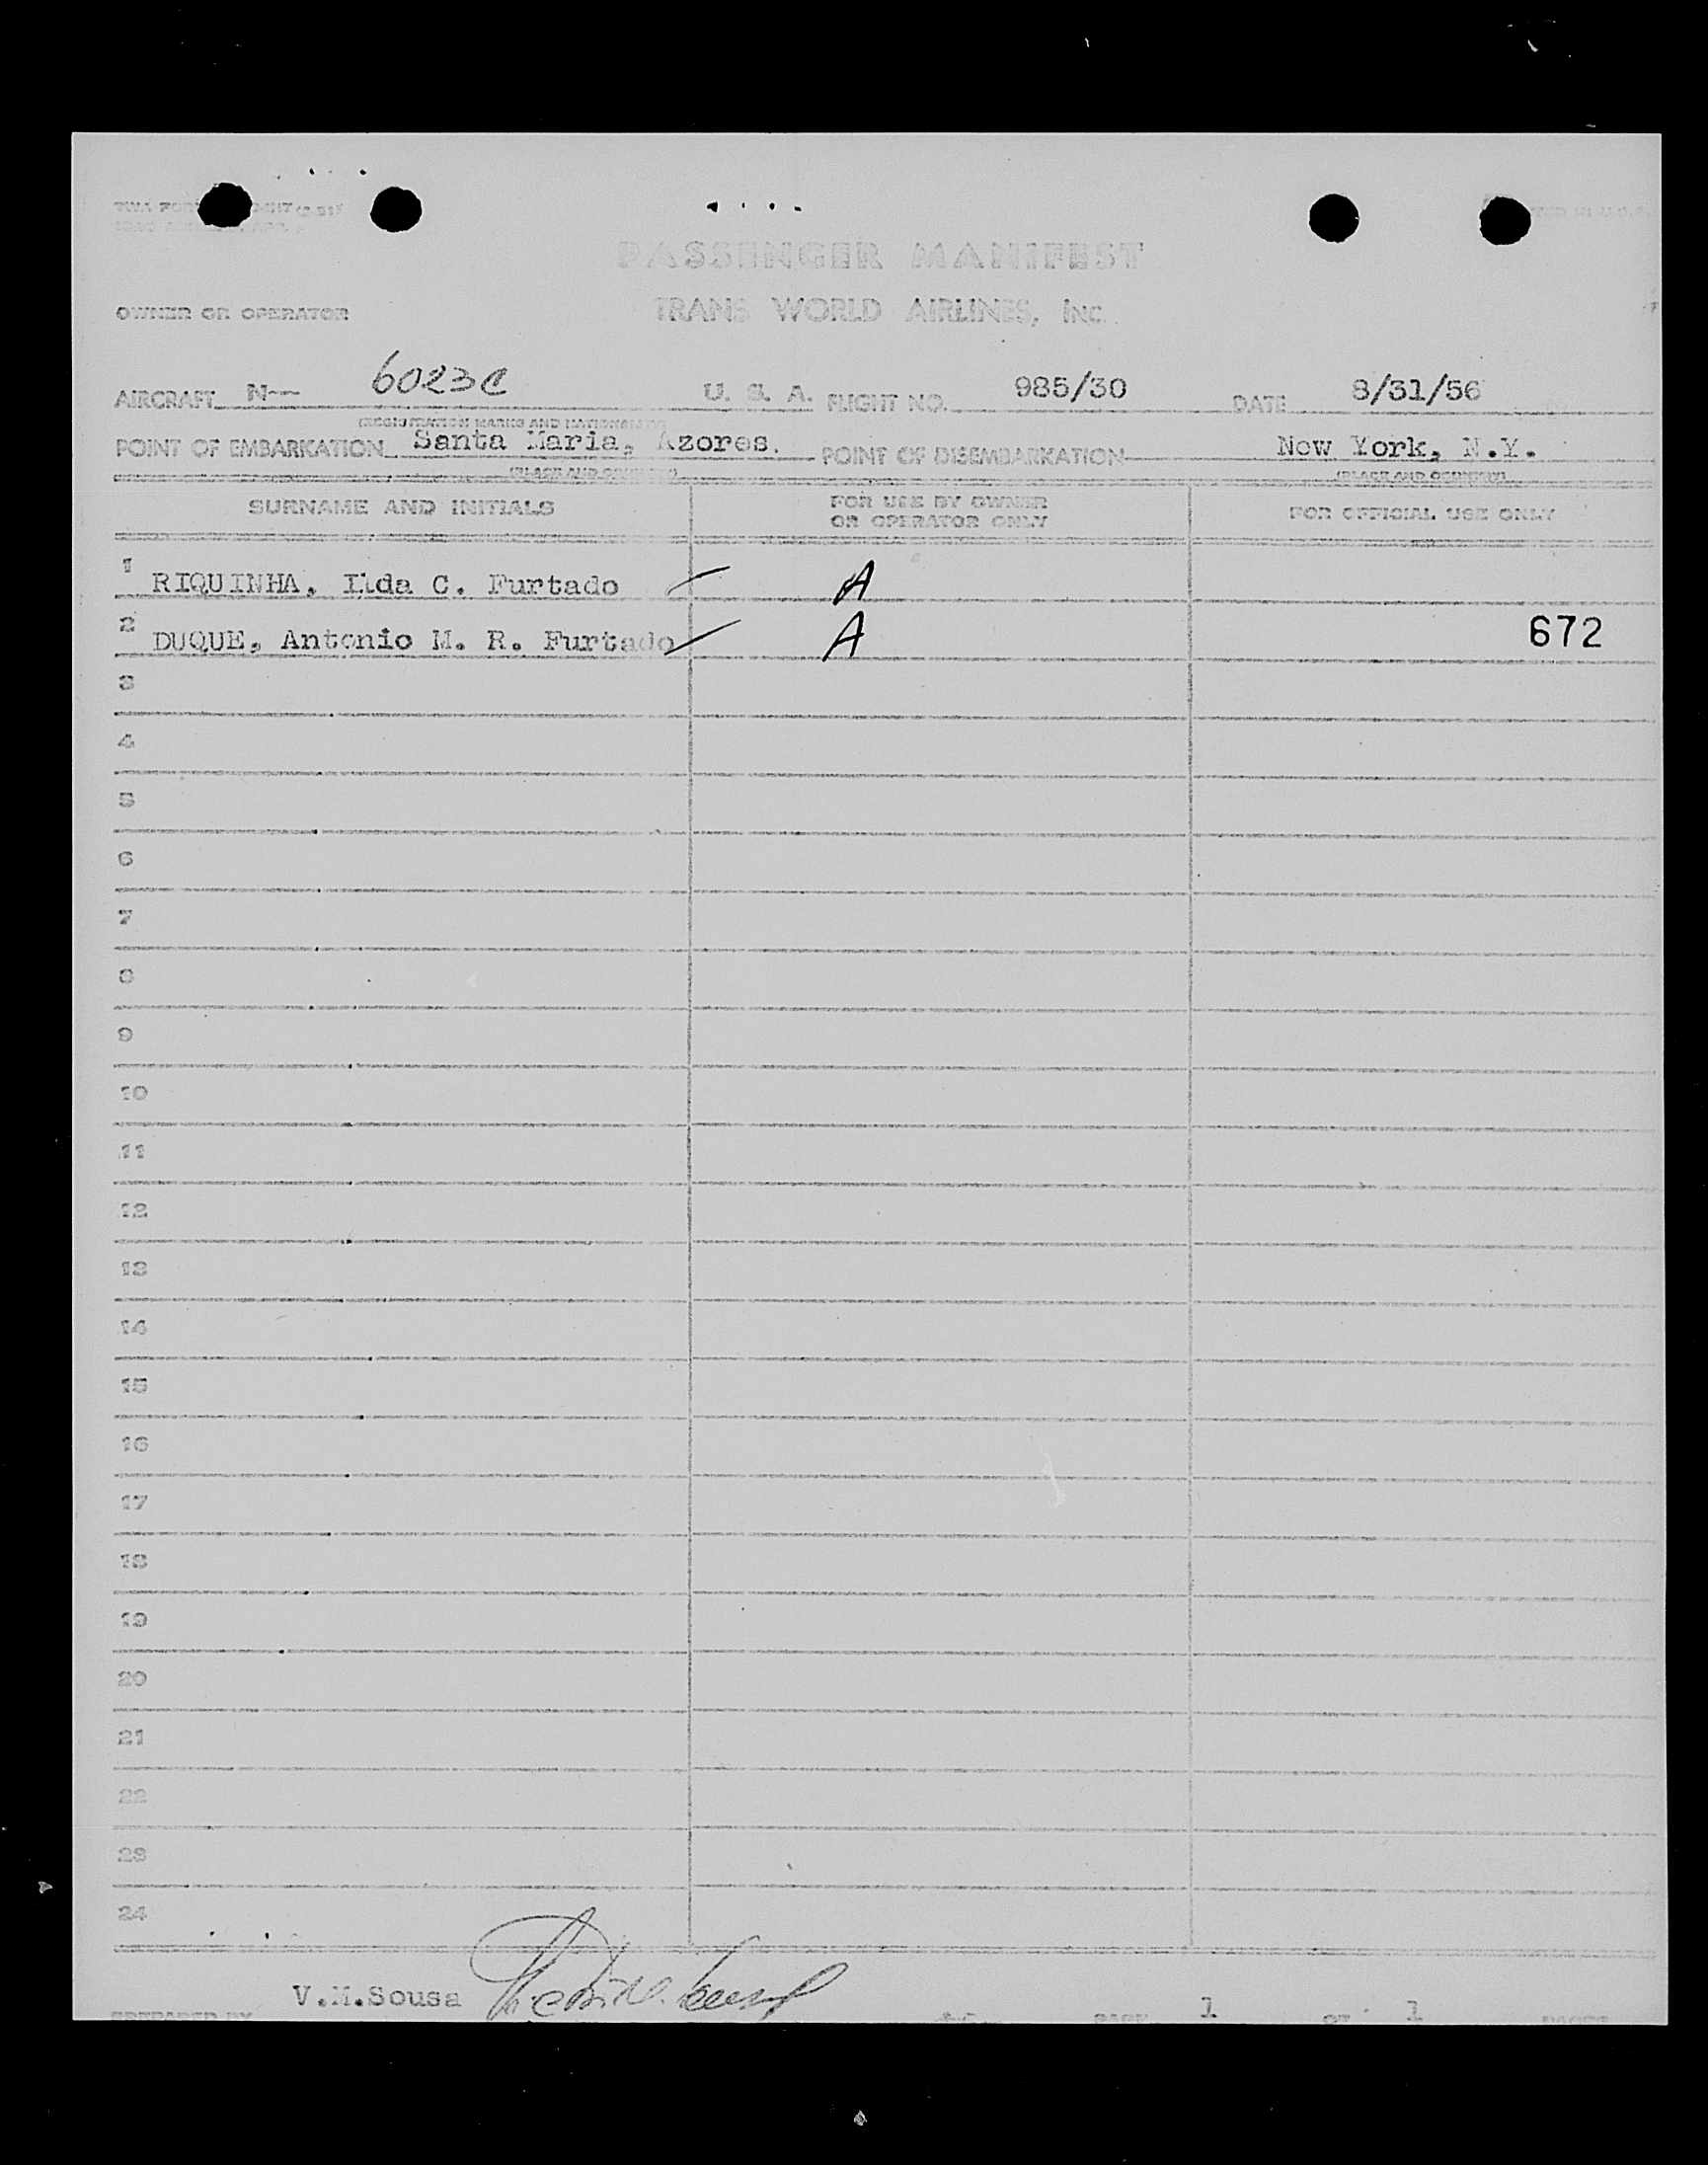 TWA FORM
PASSENGER MANIFEST
OWNER OR OPERATOR TRANS WORLD AIRLINES, INC.
AIRCRAFT N-- 6023C U. S. A. FLIGHT NO. 985/30 DATE 8/31/56
(REGISTRATION MARKS AND NATIONALITY)
POINT OF EMBARKATION Santa Maria, Azores. POINT OF DISEMBARKATION New York, N.Y.
(PLACE AND COUNTRY) (PLACE AND COUNTRY)
SURNAME AND INITIALS FOR USE BY OWNER OR OPERATOR ONLY FOR OFFICIAL USE ONLY
1 RIQUINHA, Ilda C. Furtado A
2 DUQUE, Antonio M. R. Furtado A 672
3
4
5
6
7
8
9
10
11
12
13
14
15
16
17
18
19
20
21
22
23
24
V.M.Sousa
PREPARED BY PAGE 1 OF 1 PAGES